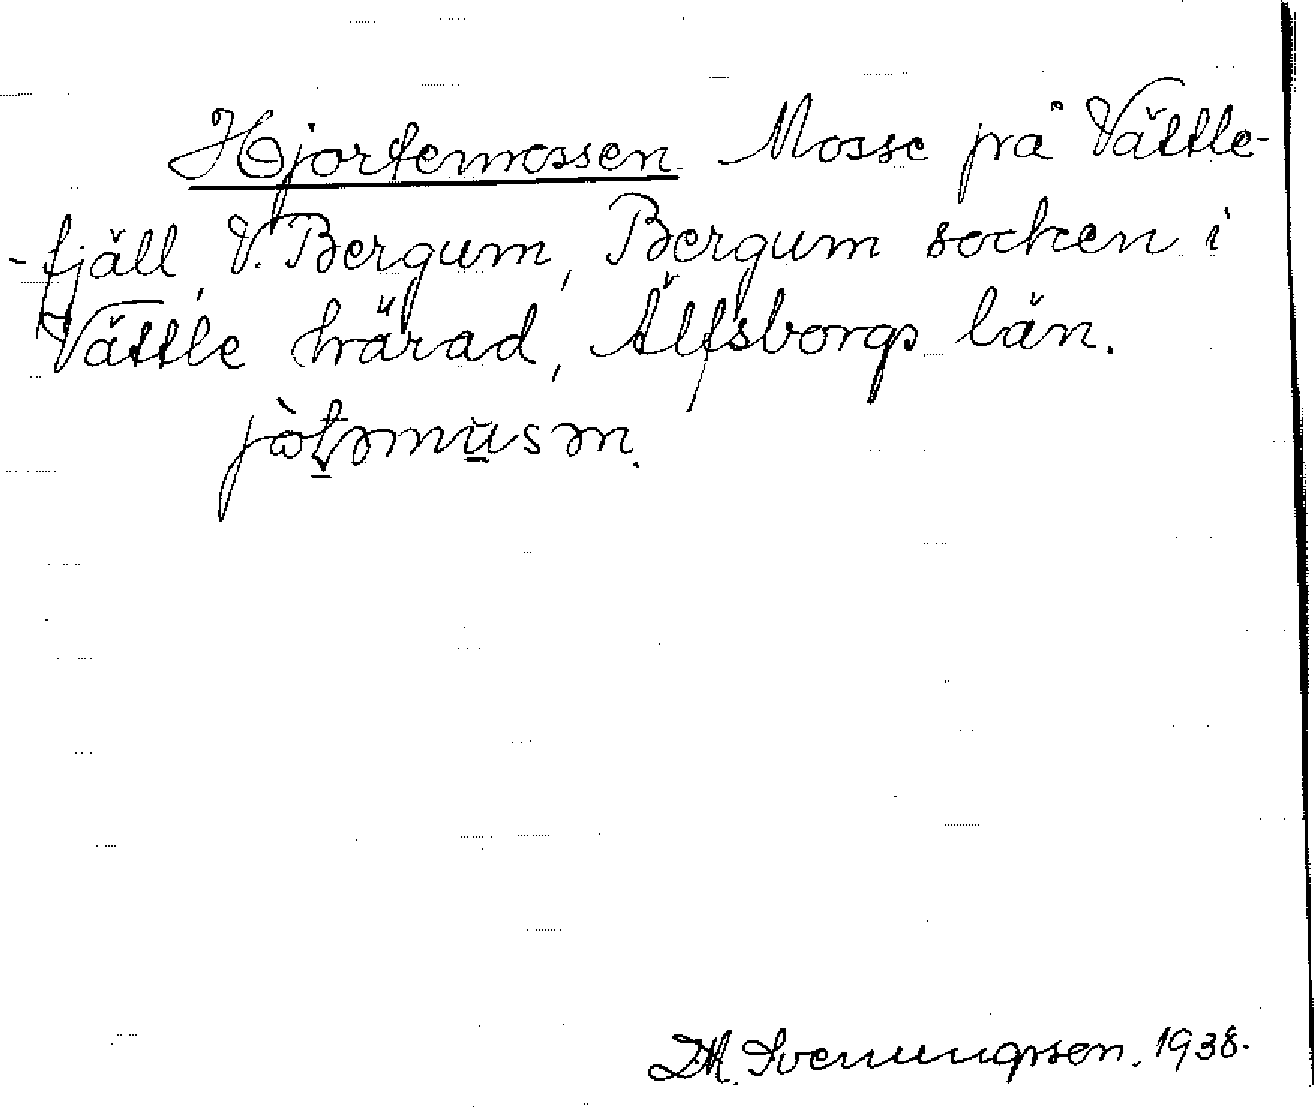 Hjortemossen Mosse på Vättle-
-fjäll, V. Bergum, Bergum socken i
Vättle härad, Älfsborgs län.
jòt̠əmu̠sən.
Svenungsson. 1938.